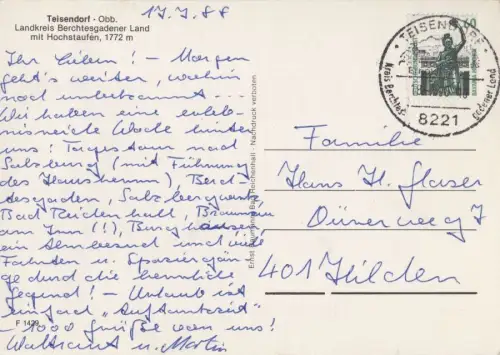 Teisendorf · Obb.
Landkreis Berchtesgadener Land
mit Hochstaufen, 1772 m
17.7.88
Ihr Lieben! – Morgen
geht's weiter, wohin
noch unbekannt –
Wir haben eine erleb-
nisreiche Woche hinter
uns! Tagestour nach
Salzburg (mit Führung
des Hausherrn), Berch-
tesgaden, Salzbergwerk,
Bad Reichenhall, Braunau
am Inn (!), Burghausen
ein und viele
Fahrten u. Spaziergän-
ge durch die herrliche
Gegend! – Urlaub ist
einfach
– 1000 Grüße von uns!
Waltraut u. Martin
F 1429
Reichenhall · Nachdruck verboten
60
TEISENDORF
Kreis Berchtes-
gadener Land
8221
Familie
Hans H. Glaser
Dürerweg 7
401 Hilden